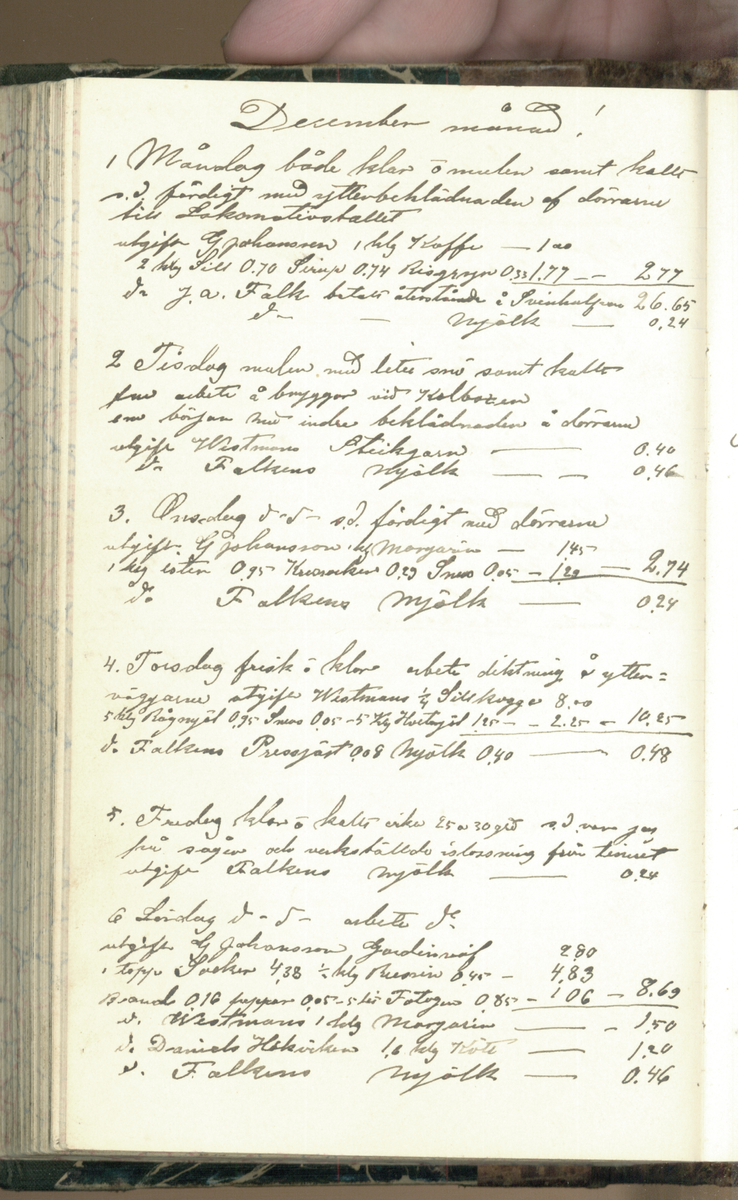 December månad!
1 Måndag både klar o mulen samt kallt
s.d. färdigt med ytterbeklädnaden af dörrarne
till Lokomotivstallet
utgift G Johansson 1 klg Kaffe — 1 00
2 klg Sill 0.70 Sirup 0.74 Risgryn 0.33 1.77 — 2.77
do J. a. Falk betalt återstående å Svinhalfvan 26.65
do — Mjölk — 0.24
2 Tisdag mulen med litet snö samt kallt
fm arbete å bryggor vid Kolboxen
em börjar med indre beklädnaden å dörrarne
utgift Westmans Steikgarn — 0.40
do Falkens Mjölk — — 0.46
3. Onsdag d-d- s.d. färdigt med dörrarne
utgift. G Johansson 1 klg Margarin — 1 45
1 klg 0.95 0.29 Snus 0.05 — 1.29 — 2.74
do Falkens Mjölk — 0.24
4. Torsdag frisk o klar arbete diktning å ytter=
väggarne utgift Westmans 1/4 Sillskagge 8.00
5 klg Rågmjöl 0.95 Snus 0.05 - 5 klg Hvetemjöl 1 25 - - 2.25 - 10.25
do Falkens Pressjäst 0.08 Mjölk 0.40 — 0.48
5. Fredag klar o kallt cirka 25 a 30 grd s.d. var jag
på sågen och verkställde islossning från
utgift Falkens Mjölk — 0.24
6 Lördag d-d- arbete do
utgift G Johansson 2.80
1 topp Socker 4.38 1/2 klg Russin 0.45 - 4.83
0 16 peppar 0.05 - 5 lit Fotogen 0.85 - 1 06 - 8.69
d. Westmans 1 klg Margarin — - 1.50
d. Daniels 1,6 klg Kött — 1.20
d. Falkens Mjölk — 0.46